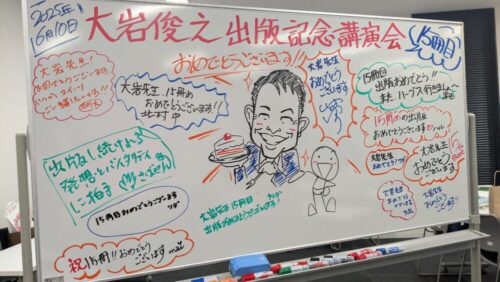 2025年
6月10日
大岩俊之 出版記念講演会
15冊目
おめでとうございます!!
大岩先生!
おめでとうございます
大岩先生!15冊目
おめでとうございます!!
北村 中
大岩先生
おめでとう
ございます
15冊目
出版おめでとう!!
また ハーブス行きましょ〜
15冊めの出版
おめでとうございます
大岩先生
おめでとう!
大岩先生
おめでとう
ございます
出版し続ける
発想とバイタリティ
に拍手
15冊目おめでとうございます
大岩先生 15冊目
出版おめでとうございます!
大岩先生
おめでとう
ございます
大岩先生
おめでとう
ございます!!
祝15冊!!おめでとう
ございます